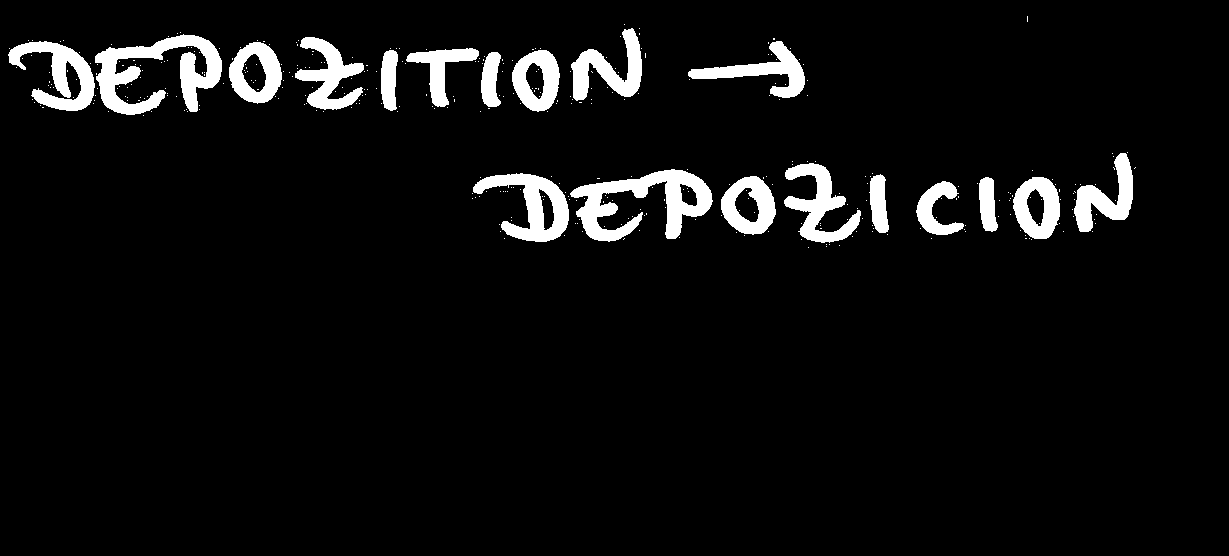 DEPOZITION →
DEPOZICION